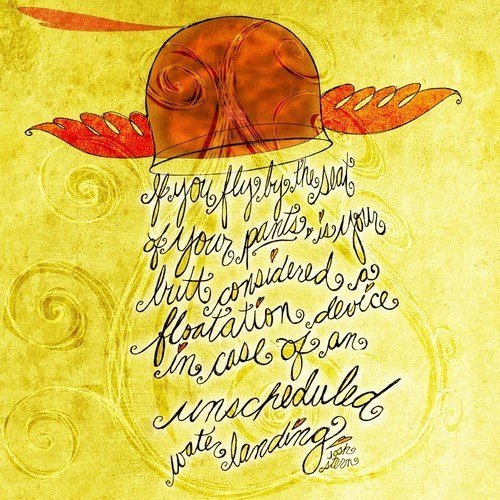 If you fly by the seat
of your pants, is your
butt considered a
floatation device
in case of an
unscheduled
water landing
josh
stern